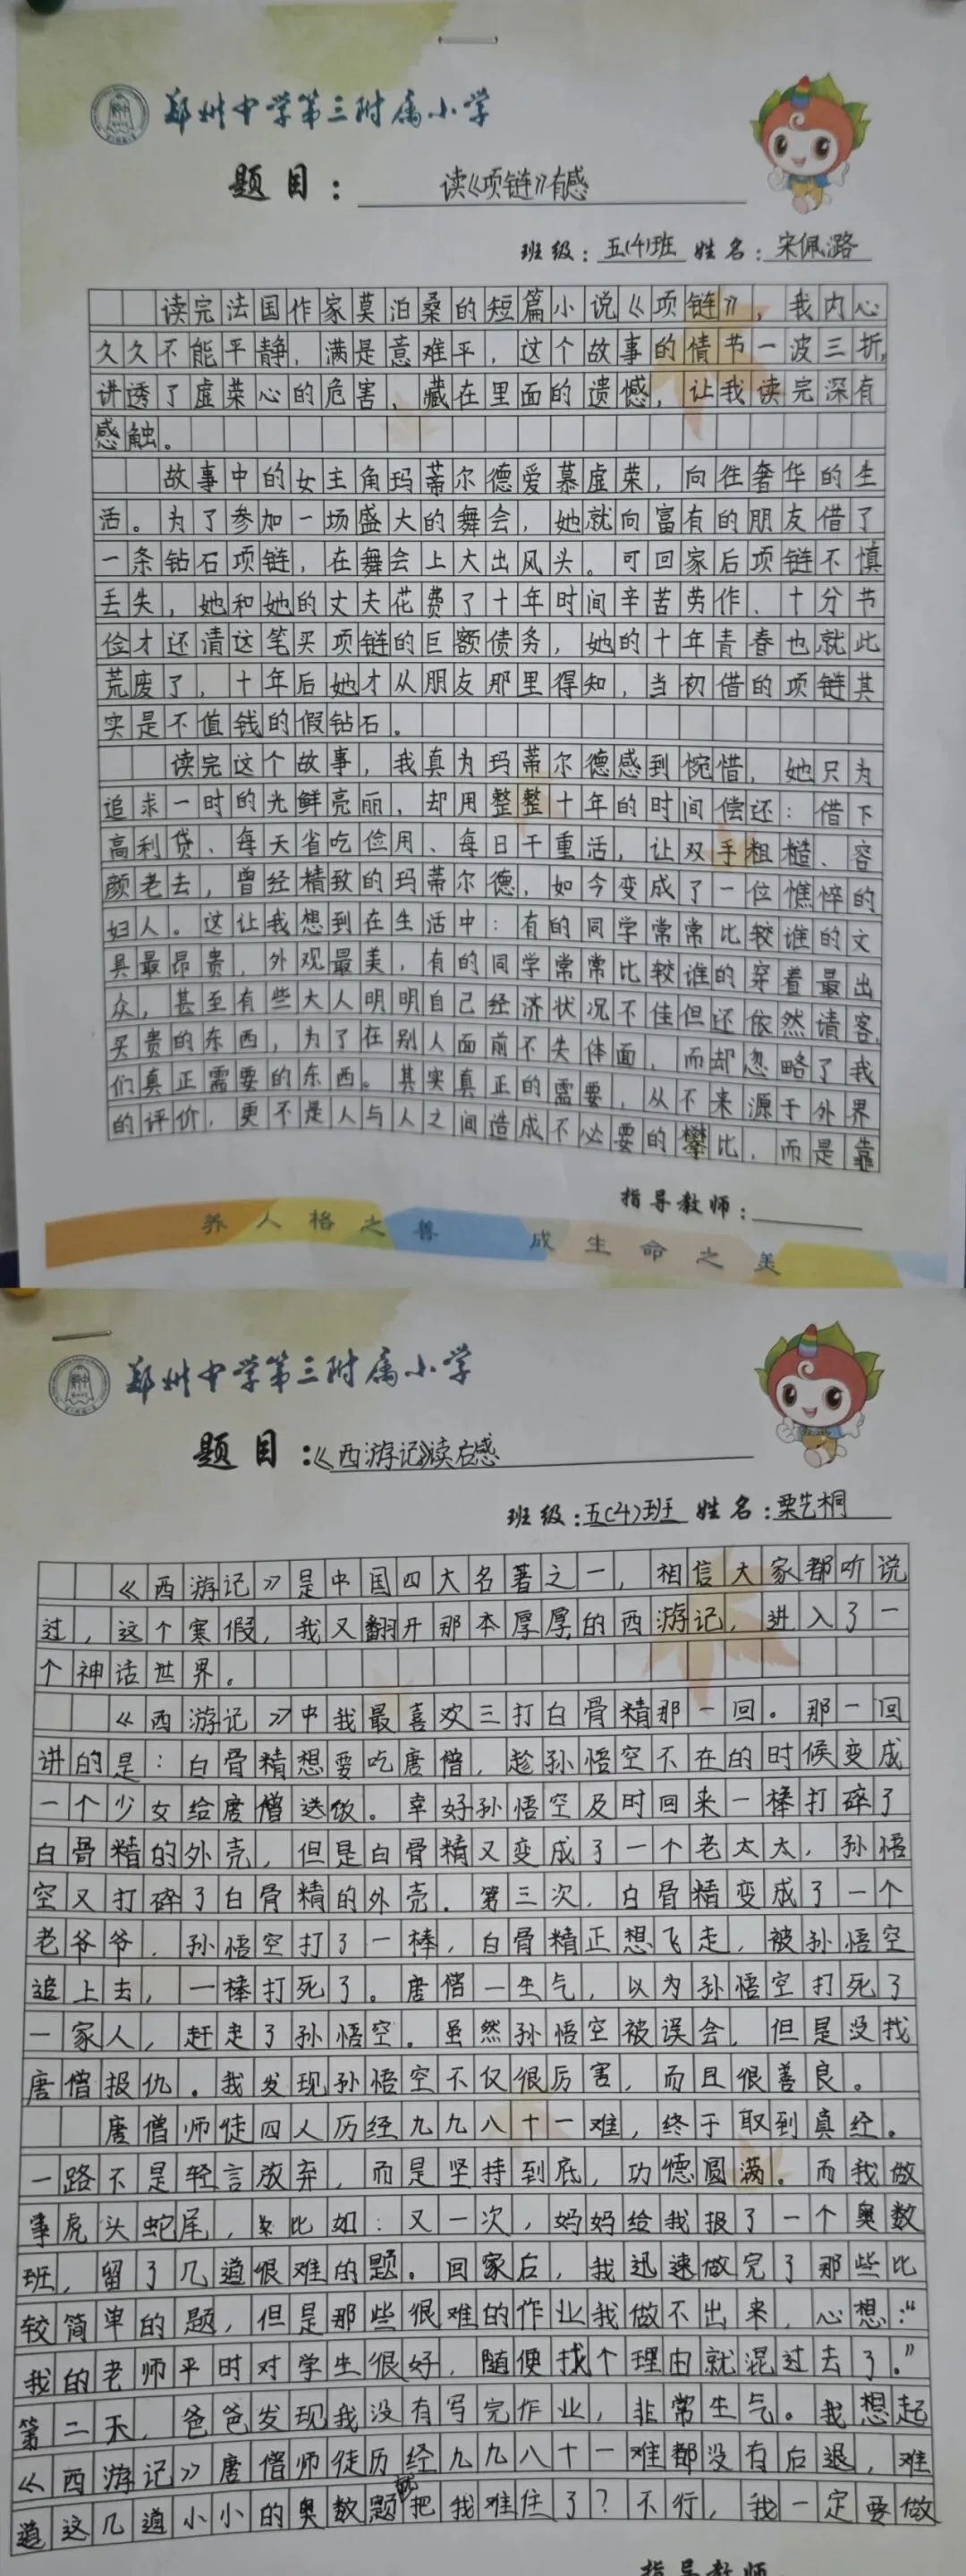 郑州中学第三附属小学
题目：读《项链》有感
班级：五(4)班 姓名：宋佩潞
读完法国作家莫泊桑的短篇小说《项链》，我内心
久久不能平静，满是意难平，这个故事的情节一波三折，
讲透了虚荣心的危害，藏在里面的遗憾，让我读完深有
感触。
故事中的女主角玛蒂尔德爱慕虚荣，向往奢华的生
活。为了参加一场盛大的舞会，她就向富有的朋友借了
一条钻石项链，在舞会上大出风头。可回家后项链不慎
丢失，她和她的丈夫花费了十年时间辛苦劳作、十分节
俭才还清这笔买项链的巨额债务，她的十年青春也就此
荒废了，十年后她才从朋友那里得知，当初借的项链其
实是不值钱的假钻石。
读完这个故事，我真为玛蒂尔德感到惋惜，她只为
追求一时的光鲜亮丽，却用整整十年的时间偿还：借下
高利贷、每天省吃俭用、每日干重活，让双手粗糙、容
颜老去，曾经精致的玛蒂尔德，如今变成了一位憔悴的
妇人。这让我想到在生活中：有的同学常常比较谁的文
具最昂贵，外观最美，有的同学常常比较谁的穿着最出
众，甚至有些大人明明自己经济状况不佳但还依然请客，
买贵的东西，为了在别人面前不失体面，而却忽略了我
们真正需要的东西。其实真正的需要，从不来源于外界
的评价，更不是人与人之间造成不必要的攀比，而是靠
指导教师：
养人格之善 成生命之美
郑州中学第三附属小学
题目：《西游记》读后感
班级：五(4)班 姓名：栗艺桐
《西游记》是中国四大名著之一，相信大家都听说
过，这个寒假，我又翻开那本厚厚的西游记，进入了一
个神话世界。
《西游记》中我最喜欢三打白骨精那一回。那一回
讲的是：白骨精想要吃唐僧，趁孙悟空不在的时候变成
一个少女给唐僧送饭。幸好孙悟空及时回来一棒打碎了
白骨精的外壳，但是白骨精又变成了一个老太太，孙悟
空又打碎了白骨精的外壳．第三次，白骨精变成了一个
老爷爷，孙悟空打了一棒，白骨精正想飞走，被孙悟空
追上去，一棒打死了。唐僧一生气，以为孙悟空打死了
一家人，赶走了孙悟空．虽然孙悟空被误会，但是没找
唐僧报仇．我发现孙悟空不仅很厉害，而且很善良。
唐僧师徒四人历经九九八十一难，终于取到真经．
一路不是轻言放弃，而是坚持到底，功德圆满．而我做
事虎头蛇尾，比如：又一次，妈妈给我报了一个奥数
班，留了几道很难的题。回家后，我迅速做完了那些比
较简单的题，但是那些很难的作业我做不出来，心想：“
我的老师平时对学生很好，随便找个理由就混过去了。”
第二天，爸爸发现我没有写完作业，非常生气。我想起
《西游记》唐僧师徒历经九九八十一难都没有后退，难
道这几道小小的奥数题就把我难住了？不行，我一定要做
指导教师：